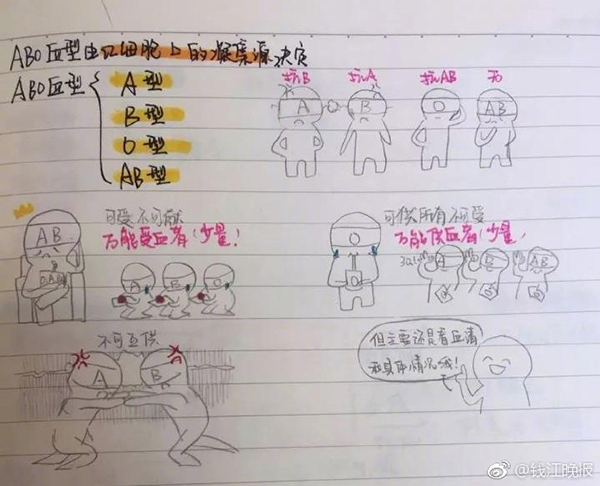 ABO血型由红细胞上的凝集源决定
ABO血型
A型
B型
O型
AB型
抗B
抗A
抗AB
无
A
B
O
AB
可受不可献
万能受血者(少量!
AB
O.A.B
A
B
O
可供所有不可受
万能供血者(少量,
O
A
B
AB
不可互供
A
B
但主要还是看血清
和具体情况哦!
@钱江晚报